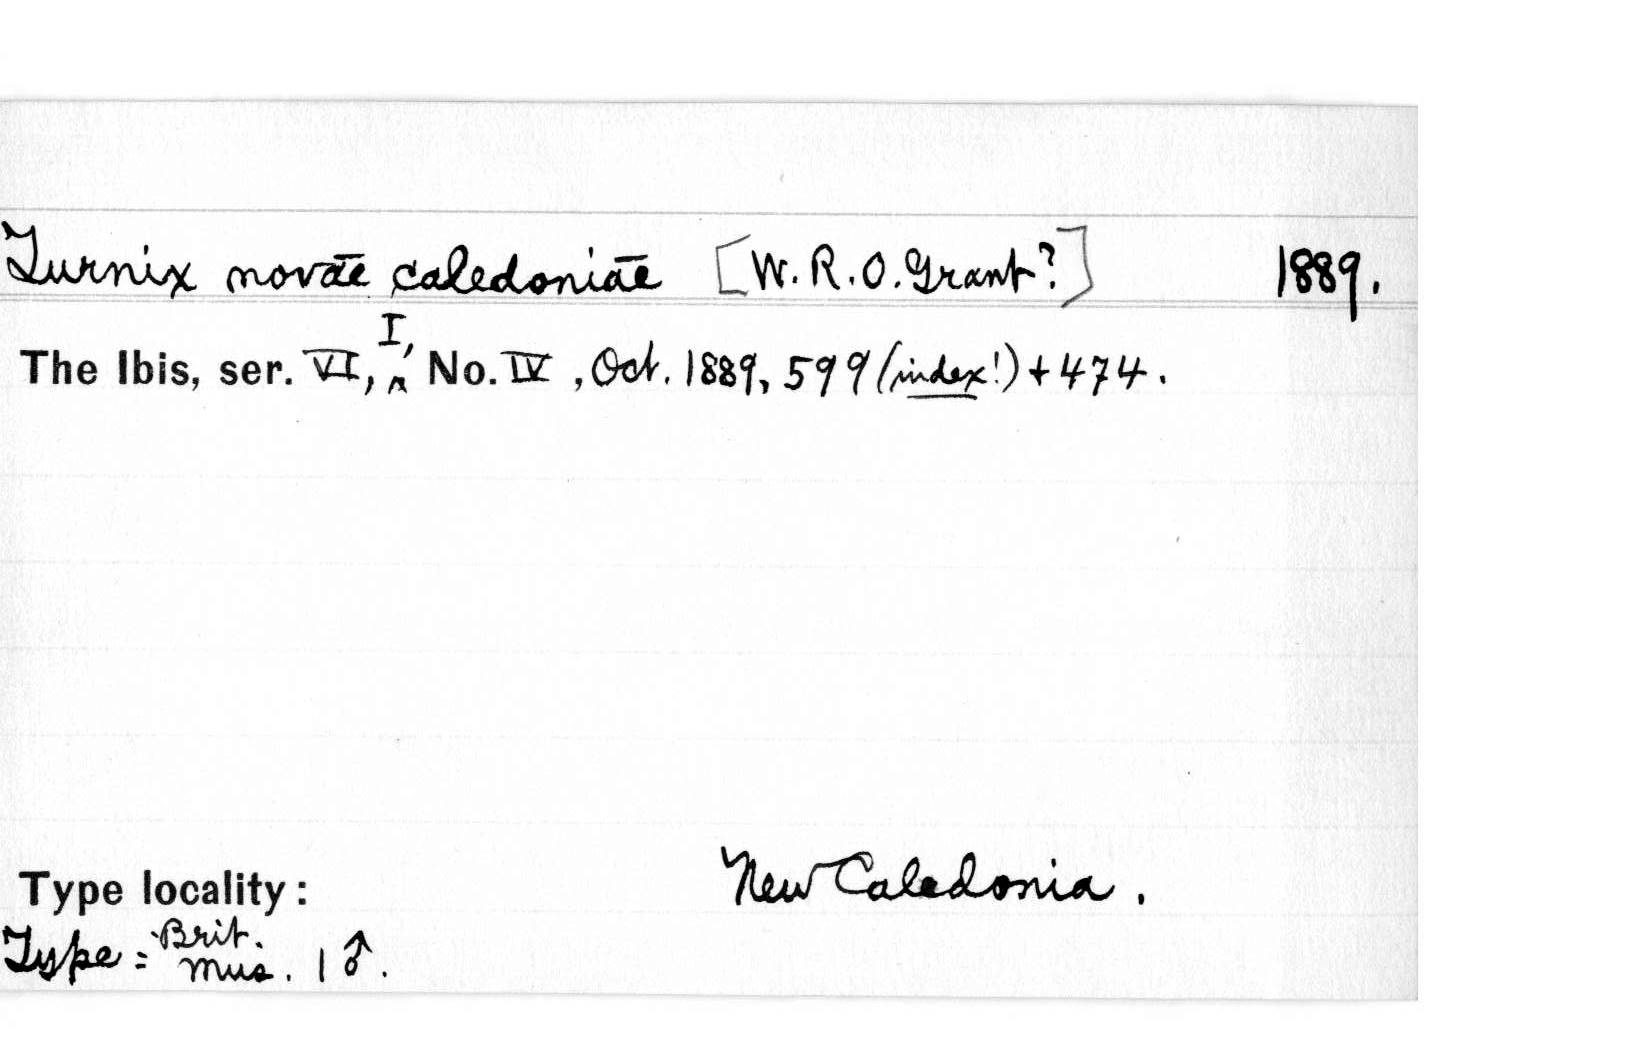 Turnix novae caledoniae [W. R. O. Grant?] 1889.
The Ibis, ser. VI, I, No. IV, Oct. 1889, 599 (index!) + 474.
Type locality: New Caledonia.
Type = Brit. Mus. 1 ♂.